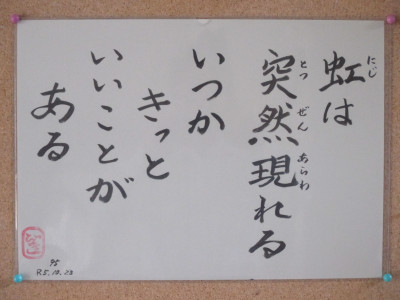 虹は
にじ
突然現れる
とつ ぜん あらわ
いつか
きっと
いいことが
ある
95
R5.12.23